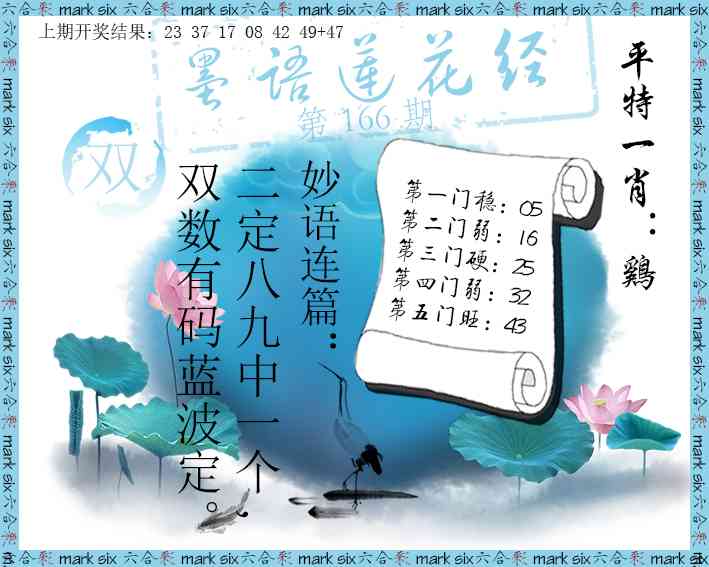 上期开奖结果：23 37 17 08 42 49+47
墨语莲花经
第 166 期
双
平特一肖：鷄
妙语连篇：
二定八九中一个，
双数有码蓝波定。
第一门稳：05
第二门弱：16
第三门硬：25
第四门弱：32
第五门旺：43
六合彩 mark six 六合彩 mark six 六合彩 mark six 六合彩 mark six 六合彩 mark six 六合彩 mark six